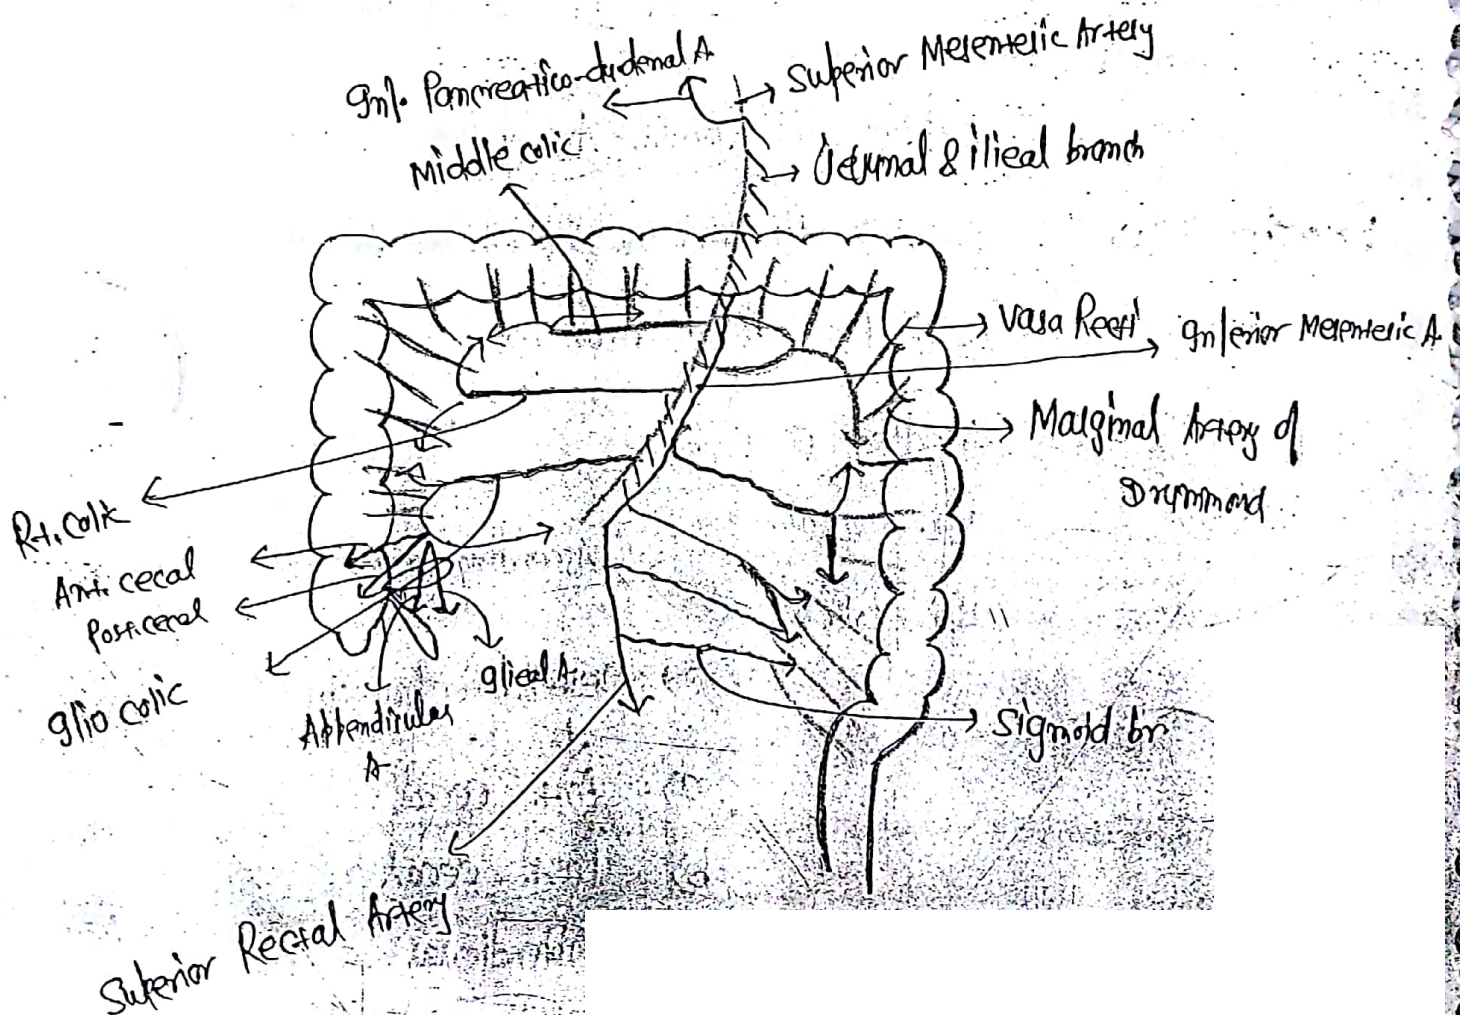 Inf. Pancreatico-dudenal A
Superior Mesenteric Artery
Middle colic
Jejunal & ilieal branch
Vasa Recti
Inferior Mesenteric A.
Marginal Artery of
Drummond
Rt. Colic
Ant. cecal
Post. cecal
Ilio colic
Appendicular
A
Ilieal A.
Sigmoid br
Superior Rectal Artery